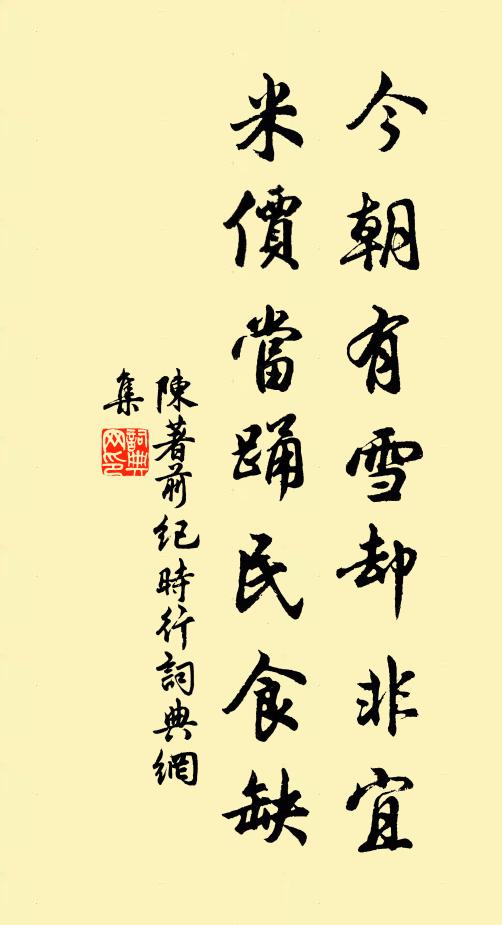 今朝有雪却非宜
米價當踊民食缺
陳著前纪時行詞典網
集
詞典
网印